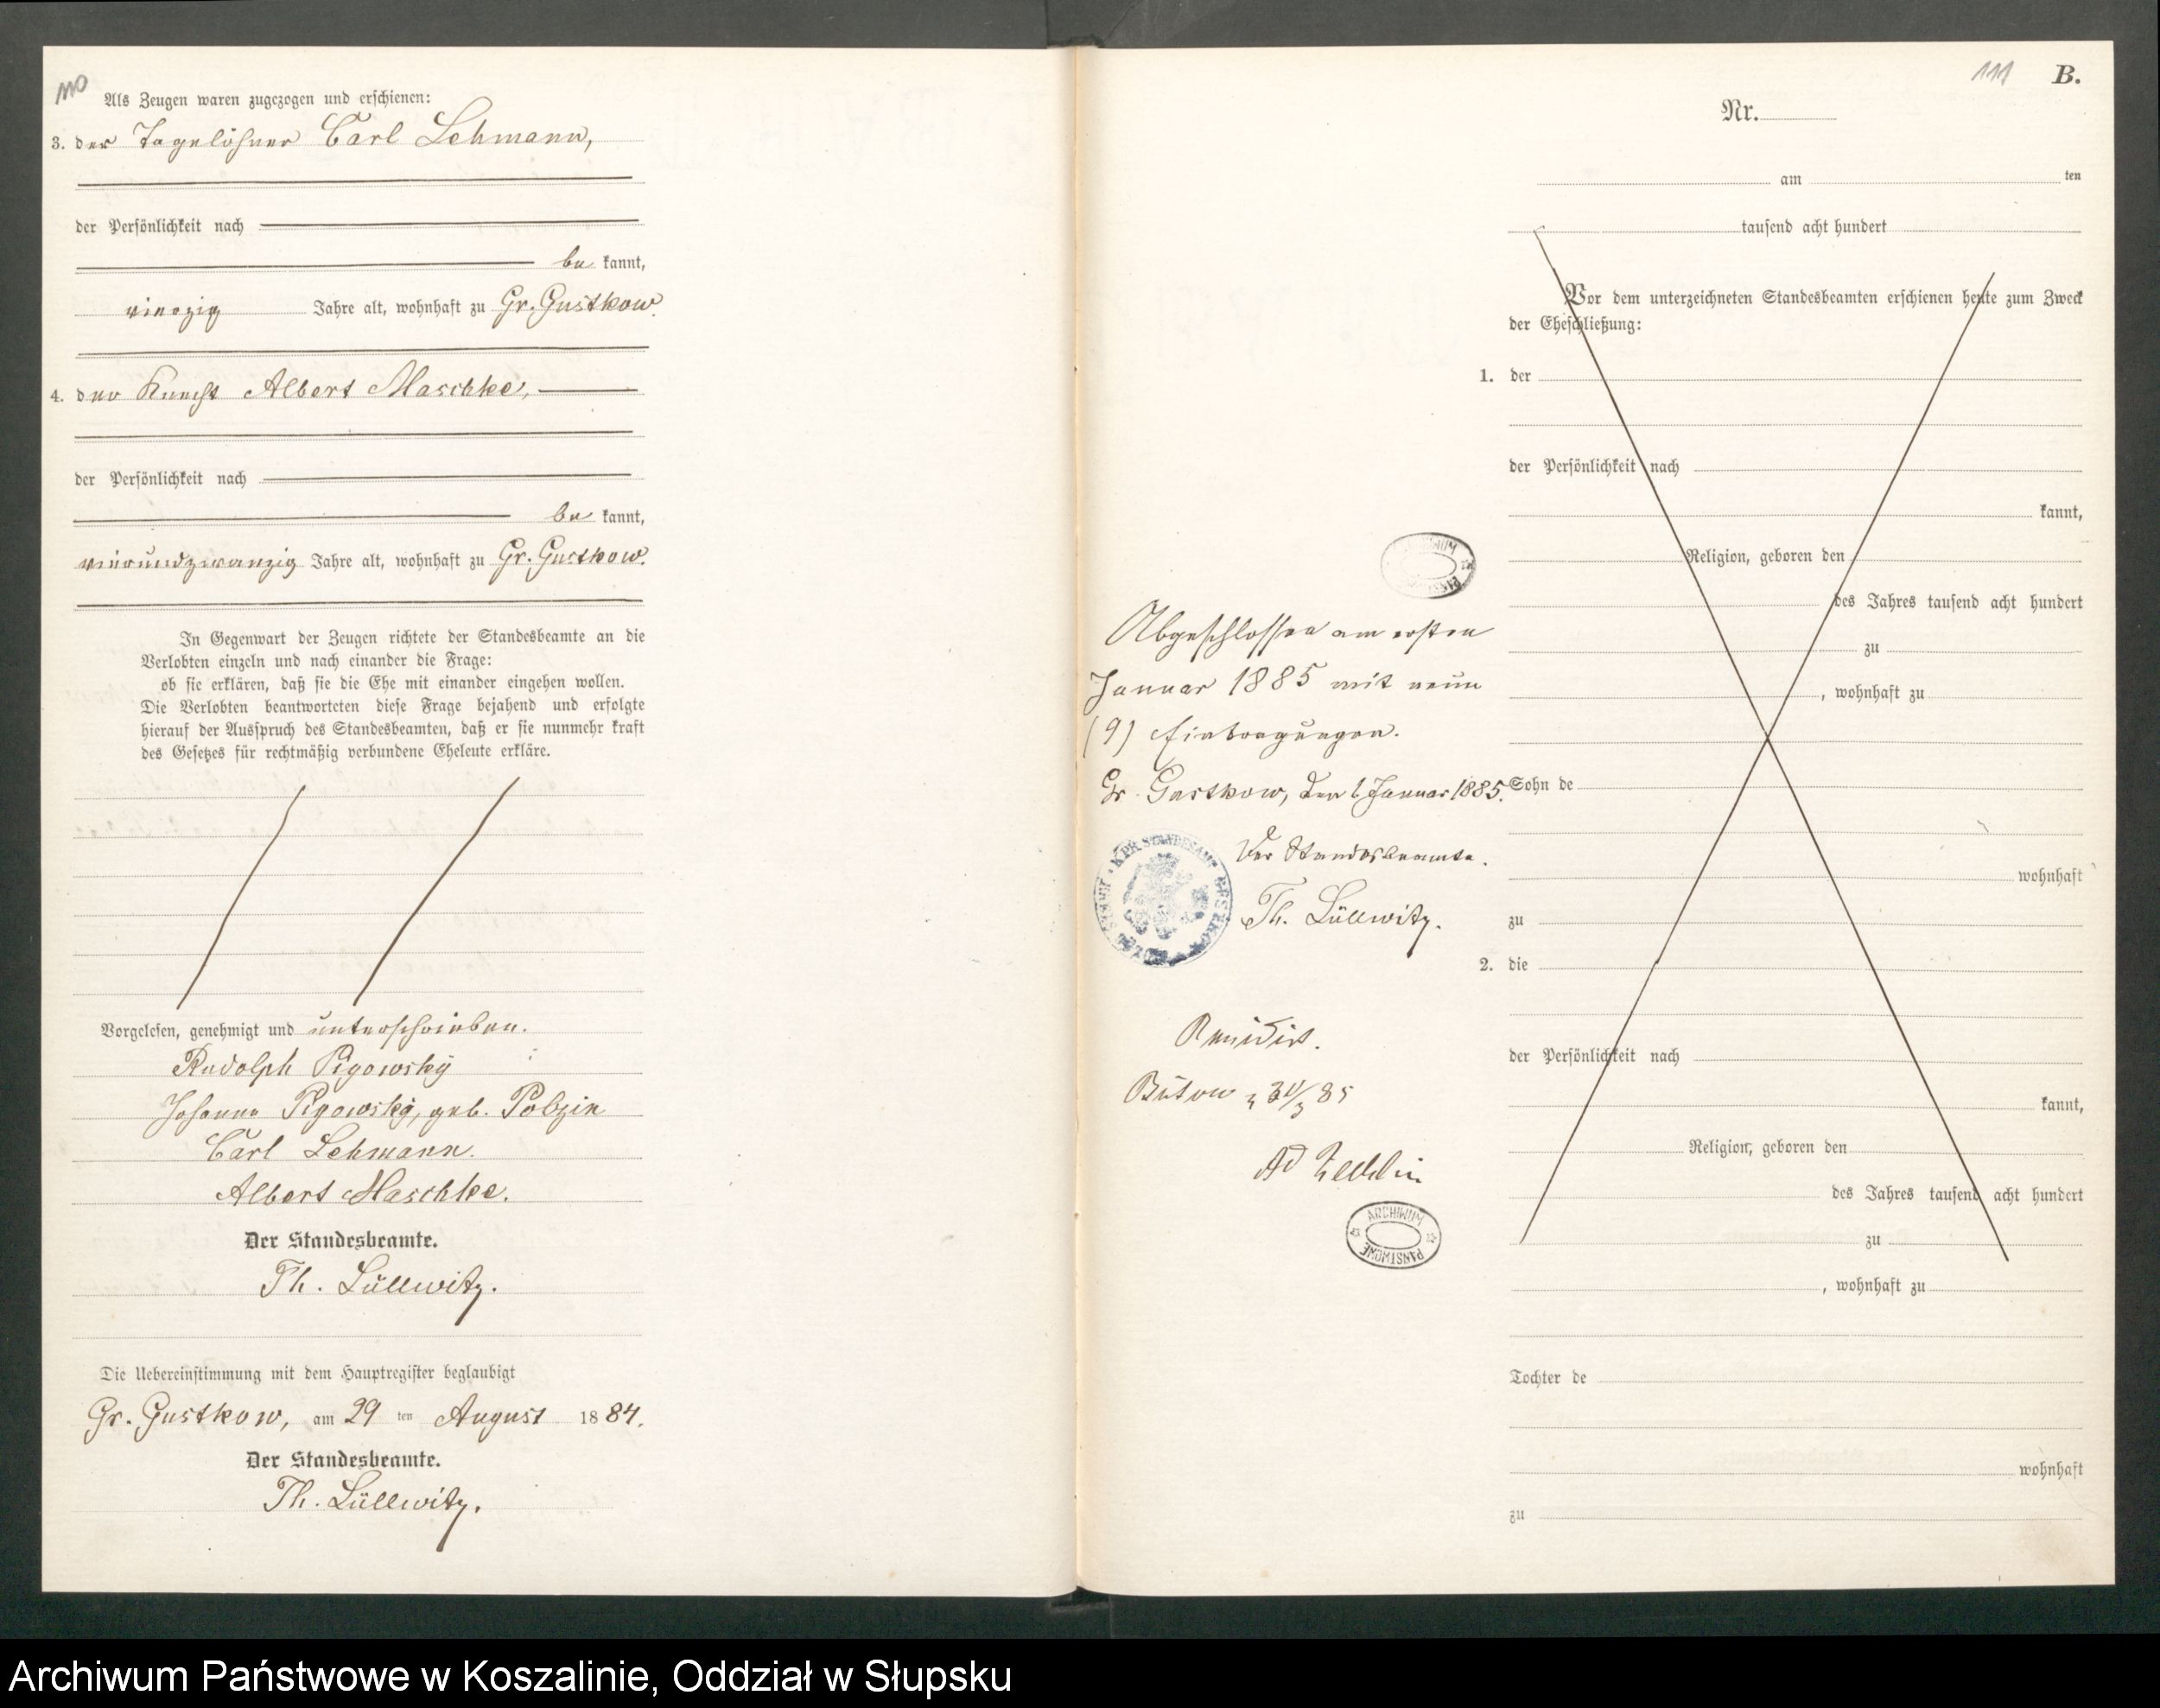 110
Als Zeugen waren zugezogen und erschienen:
3. der Tagelöhner Carl Lehmann,
der Persönlichkeit nach
be kannt,
vierzig Jahre alt, wohnhaft zu Gr. Gustkow.
4. der Knecht Albert Maschke,
der Persönlichkeit nach
be kannt,
vierundzwanzig Jahre alt, wohnhaft zu Gr. Gustkow.
In Gegenwart der Zeugen richtete der Standesbeamte an die
Verlobten einzeln und nach einander die Frage:
ob sie erklären, daß sie die Ehe mit einander eingehen wollen.
Die Verlobten beantworteten diese Frage bejahend und erfolgte
hierauf der Ausspruch des Standesbeamten, daß er sie nunmehr kraft
des Gesetzes für rechtmäßig verbundene Eheleute erkläre.
Vorgelesen, genehmigt und unterschrieben.
Rudolph Pigowsky
Johanna Pigowsky, geb. Polzin
Carl Lehmann.
Albert Maschke.
Der Standesbeamte.
Th. Lüllwitz.
Die Uebereinstimmung mit dem Hauptregister beglaubigt
Gr. Gustkow, am 29 ten August 1884.
Der Standesbeamte.
Th. Lüllwitz.
111 B.
Nr.
am ten
tausend acht hundert
Vor dem unterzeichneten Standesbeamten erschienen heute zum Zweck
der Eheschließung:
1. der
der Persönlichkeit nach
kannt,
Religion, geboren den
des Jahres tausend acht hundert
zu
, wohnhaft zu
Sohn de
wohnhaft
zu
2. die
der Persönlichkeit nach
kannt,
Religion, geboren den
des Jahres tausend acht hundert
zu
, wohnhaft zu
Tochter de
wohnhaft
zu
ARCHIWUM PAŃSTWOWE
Abgeschlossen am ersten
Januar 1885 mit neun
(9) Eintragungen.
Gr. Gustkow, den 1 Januar 1885.
Der Standesbeamte.
Th. Lüllwitz.
Revidirt.
Bütow
85
ARCHIWUM PAŃSTWOWE
Archiwum Państwowe w Koszalinie, Oddział w Słupsku